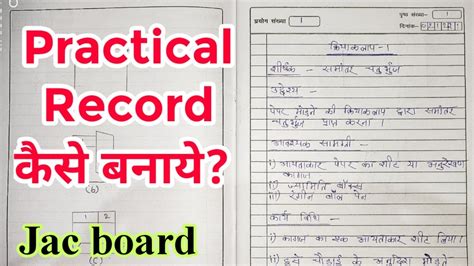 Practical
Record
कैसे बनाये?
Jac board
(b)
1 2
(c)
प्रयोग संख्या 1
पृष्ठ संख्या 1
दिनांक-
क्रियाकलाप - 1
शीर्षक - समांतर चतुर्भुज
उद्देश्य -
पेपर मोड़ने की क्रियाकलाप द्वारा समांतर
चतुर्भुज प्राप्त करना।
आवश्यक सामग्री -
i) आयताकार पेपर का शीट या अनुरेखण
कागज
ii) ज्यामिति बॉक्स
iii) रंगीन बॉल पेन
कार्य विधि -
i) कागज का एक आयताकार शीट लिया।
ii) इसे चौड़ाई के अनुदिश मोड़ते